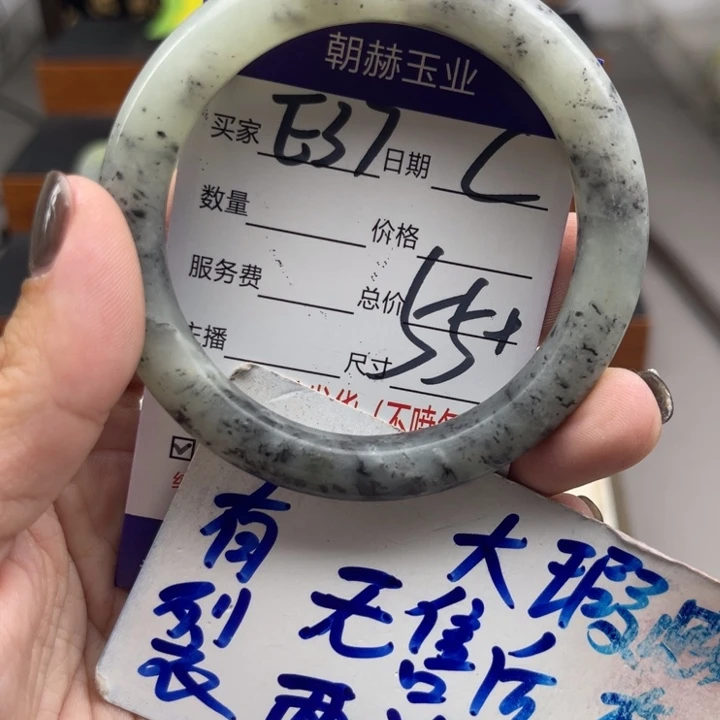 朝赫玉业
买家 E37 日期 C
数量 价格
服务费 总价
主播 尺寸 55+
发货(不喷
有裂
无售后
大瑕